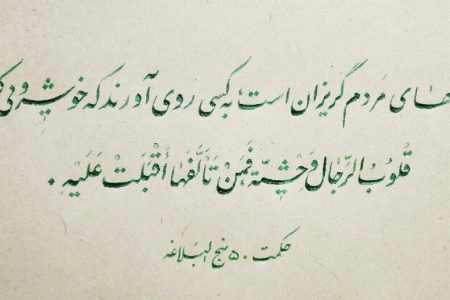 های مَردم گریزان است، به کسی روی آورند که خوشرویی
قُلُوبُ الرِّجَالِ وَحْشِیَّة فَمَنْ تَأَلَّفَهَا أَقْبَلَتْ عَلَیْهِ.
حکمت ۵۰ نهج البلاغه